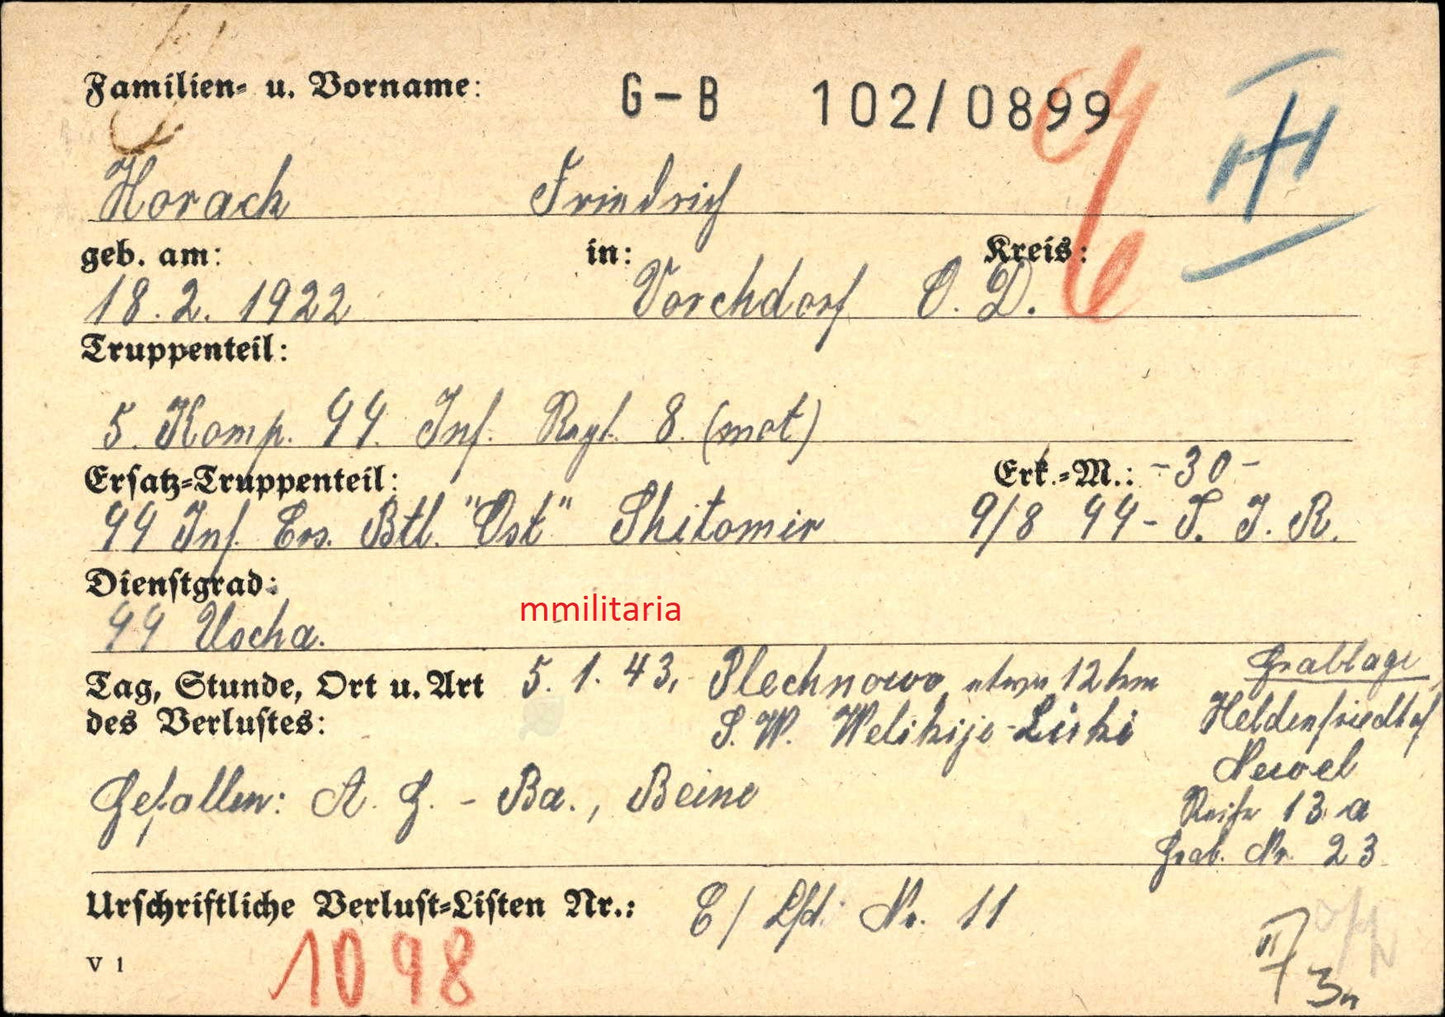 Familien- u. Vorname:
G-B 102/0899
Horach Friedrich
geb. am: in: Kreis:
18.2. 1922 Vorchdorf O. D.
Truppenteil:
5. Komp. 44. Inf. Regt. 8. (mot)
Ersatz-Truppenteil: Erk.-M.: -30-
44 Inf. Ers. Btl. "Ost" Shitomir 9/8 44- T. J. R.
Dienstgrad:
44 Uscha.
mmilitaria
Tag, Stunde, Ort u. Art 5. 1. 43, Plechnowo etwa 12 km
des Verlustes: S.W. Welikije-Luki
Gefallen: A. G. - Ba., Beine
Grablage
Heldenfriedhof
Newel
Reihe 13 a
Grab. Nr. 23
Urschriftliche Verlust-Listen Nr.: E/ Lfd. Nr. 11
1098
V 1